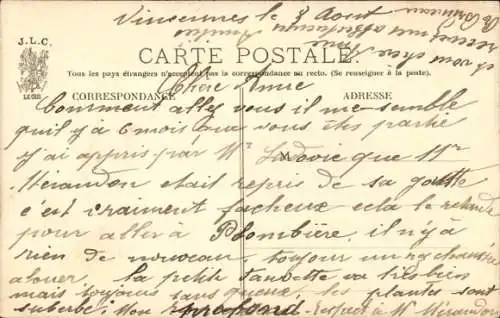 Vincennes le 3 Aout
J.L.C.
CARTE POSTALE
Tous les pays étrangers n'acceptent pas la correspondance au recto. (Se renseigner à la poste).
CORRESPONDANCE
ADRESSE
Chère Amie
Comment allez vous il me semble
qu'il y a 6 mois que vous êtes partie
j'ai appris par Mr Ludovic que Mr
Mérandon etait repris de sa goutte
c'est vraiment facheux cela le retarde
pour aller a Plombière, il n'y a
rien de nouveau, toujour un rez chaussée
a louer. la petit va très bien
mais toujours sans queue, les plantes sont
superbe, Mon profond respect a Mr Mérandon
et vous chère
recevez mes affectueuses Amitiés